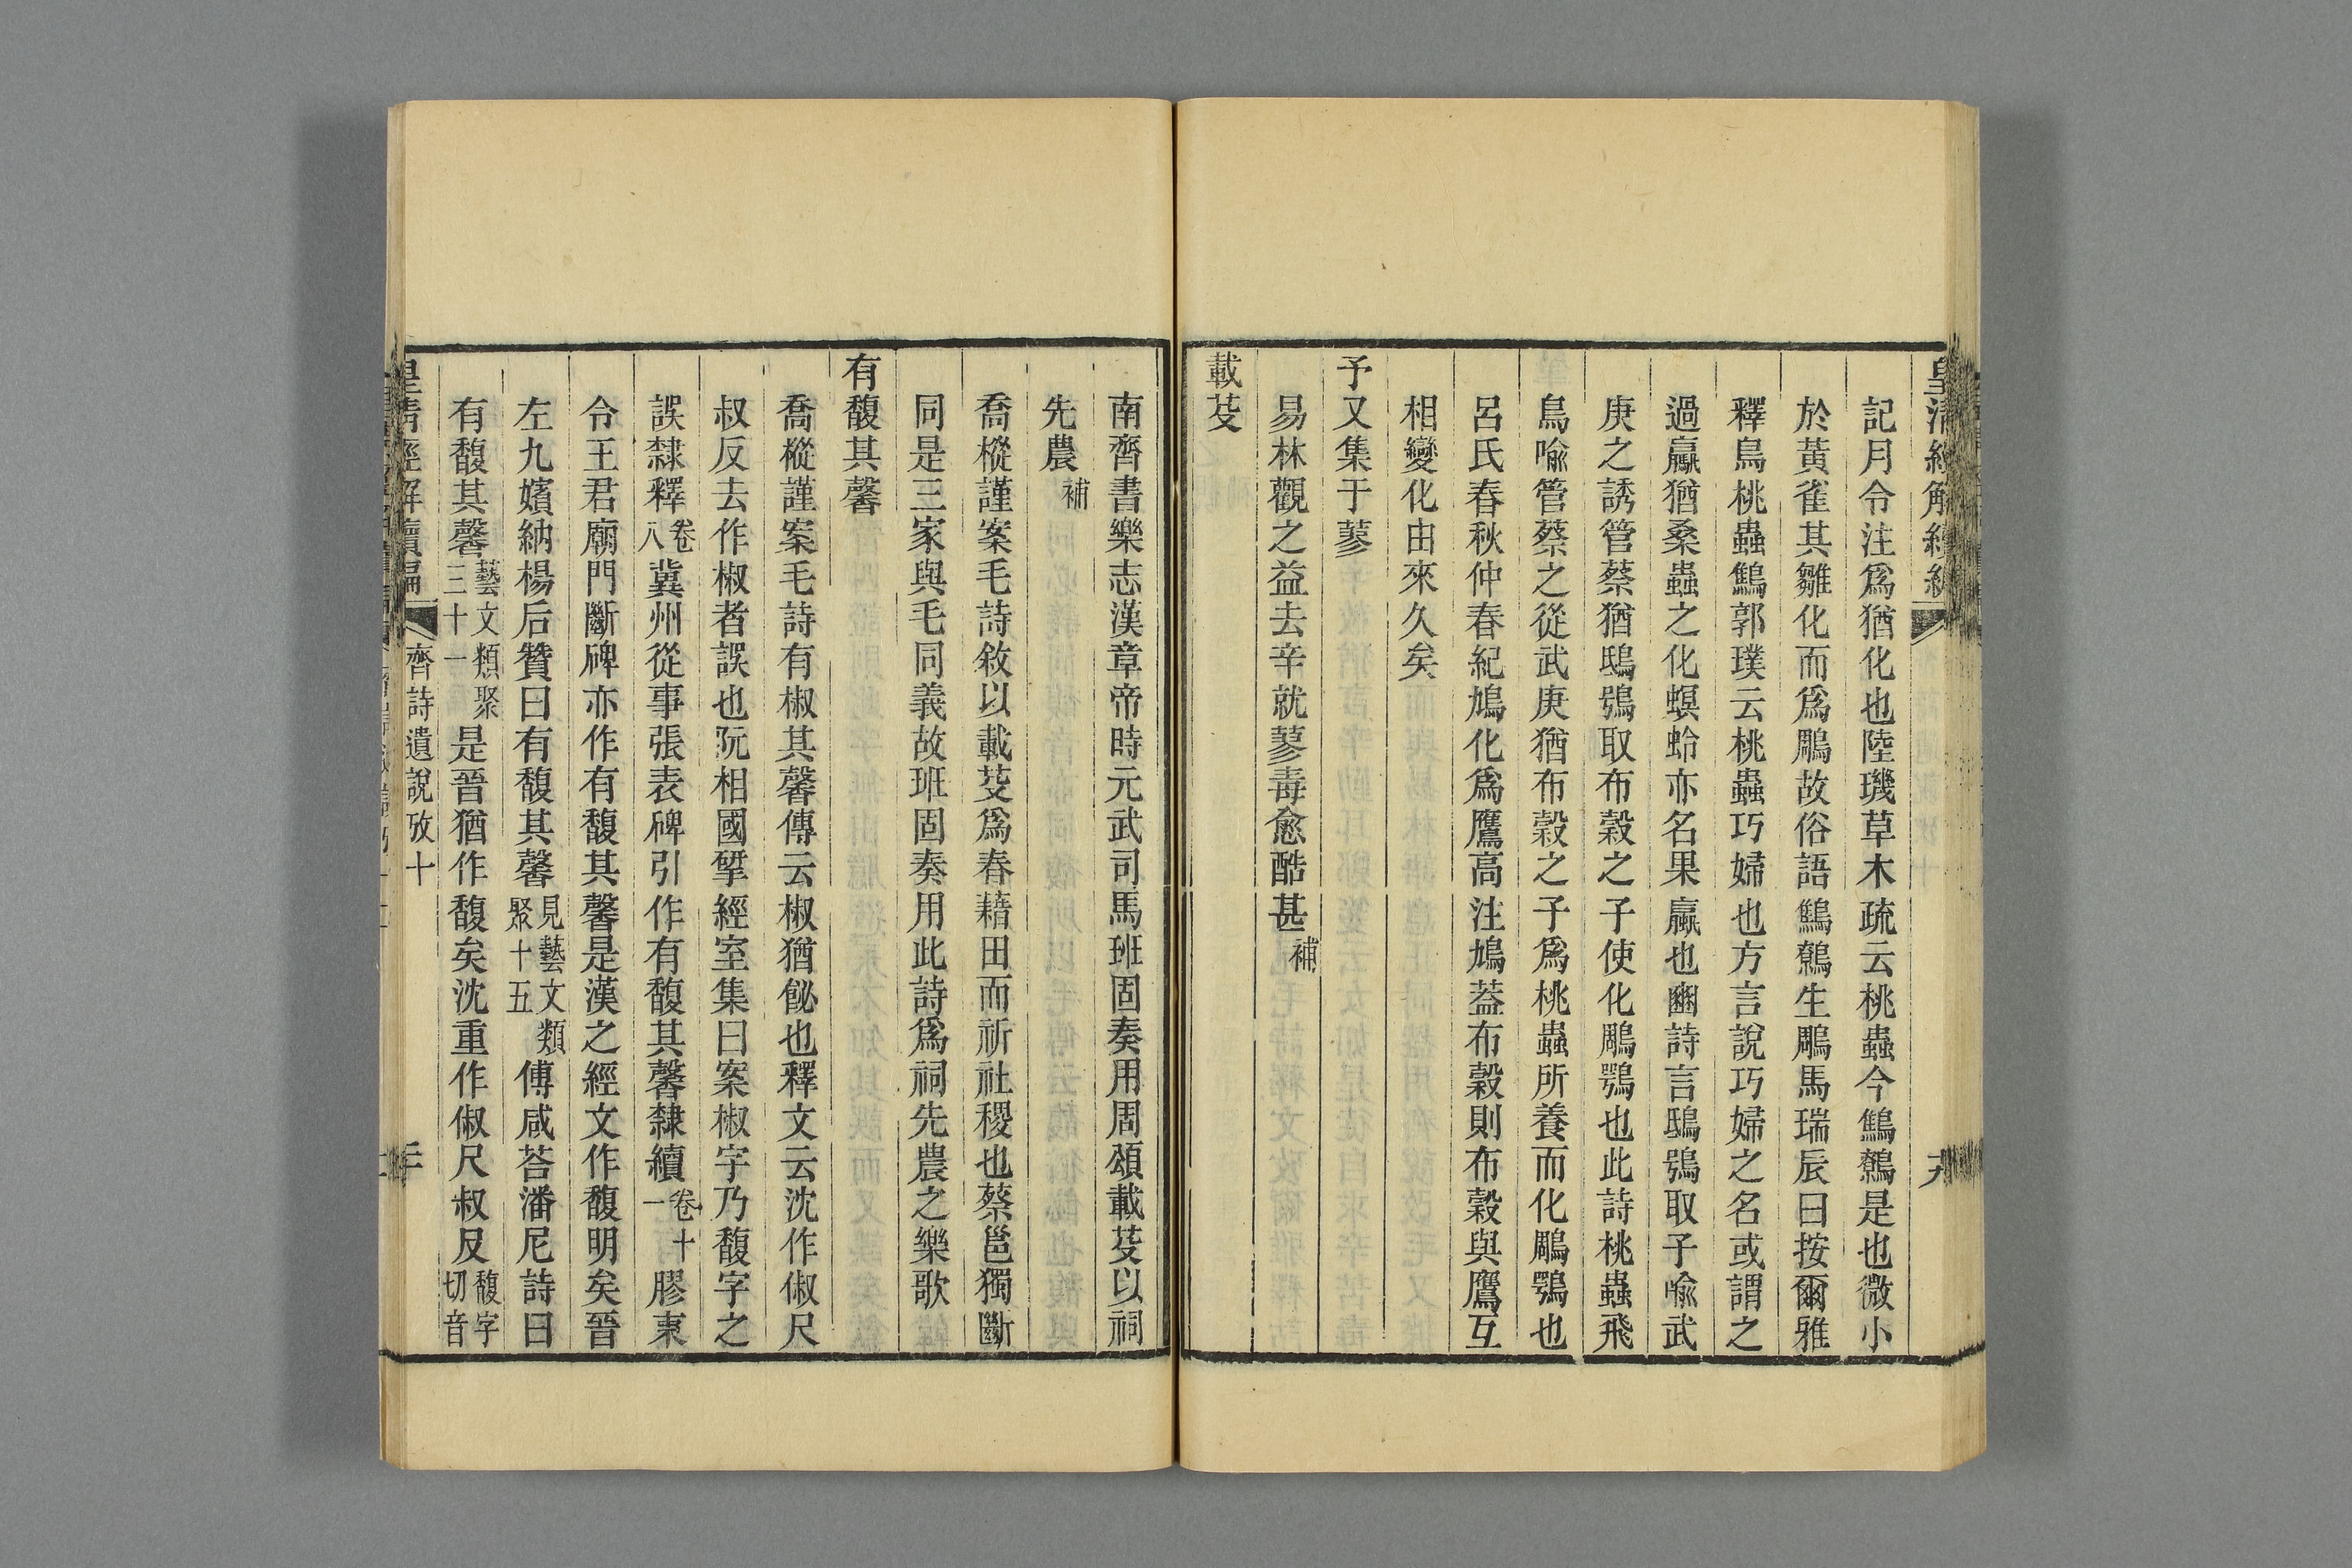 皇清經解續編
九
記月令注爲猶化也陸璣草木疏云桃蟲今鷦鷯是也微小
於黃雀其雛化而爲鵰故俗語鷦鷯生鵰馬瑞辰曰按爾雅
釋鳥桃蟲鷦郭璞云桃蟲巧婦也方言說巧婦之名或謂之
過鸁猶桑蟲之化螟蛉亦名果鸁也豳詩言鴟鴞取子喻武
庚之誘管蔡猶鴟鴞取布穀之子使化鵰鶚也此詩桃蟲飛
鳥喻管蔡之從武庚猶布穀之子爲桃蟲所養而化鵰鶚也
呂氏春秋仲春紀鳩化爲鷹高注鳩葢布穀則布穀與鷹互
相變化由來久矣
予又集于蓼
易林觀之益去辛就蓼毒愈酷甚補
載芟
南齊書樂志漢章帝時元武司馬班固奏用周頌載芟以祠
先農補
喬樅謹案毛詩敘以載芟爲春藉田而祈社稷也蔡邕獨斷
同是三家與毛同義故班固奏用此詩爲祠先農之樂歌
有馥其馨
喬樅謹案毛詩有椒其馨傳云椒猶飶也釋文云沈作俶尺
叔反去作椒者誤也阮相國揅經室集曰案椒字乃馥字之
誤隸釋卷八冀州從事張表碑引作有馥其馨隸續卷十一膠東
令王君廟門斷碑亦作有馥其馨是漢之經文作馥明矣晉
左九嬪納楊后贊曰有馥其馨見藝文類聚十五傅咸荅潘尼詩曰
有馥其馨藝文類聚三十一是晉猶作馥矣沈重作俶尺叔反馥字切音
皇清經解續編
齊詩遺說攷十